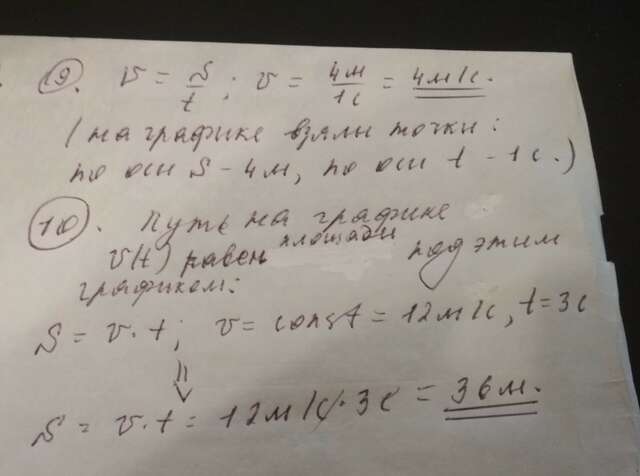 9. v = S/t ; v = 4м/1с = 4м/с.
(на графике взяли точки:
по оси S - 4м, по оси t - 1с.)
10. Путь на графике
v(t) равен площади под этим
графиком:
S = v·t; v = const = 12м/с, t = 3с
⇓
S = v·t = 12м/с·3с = 36м.